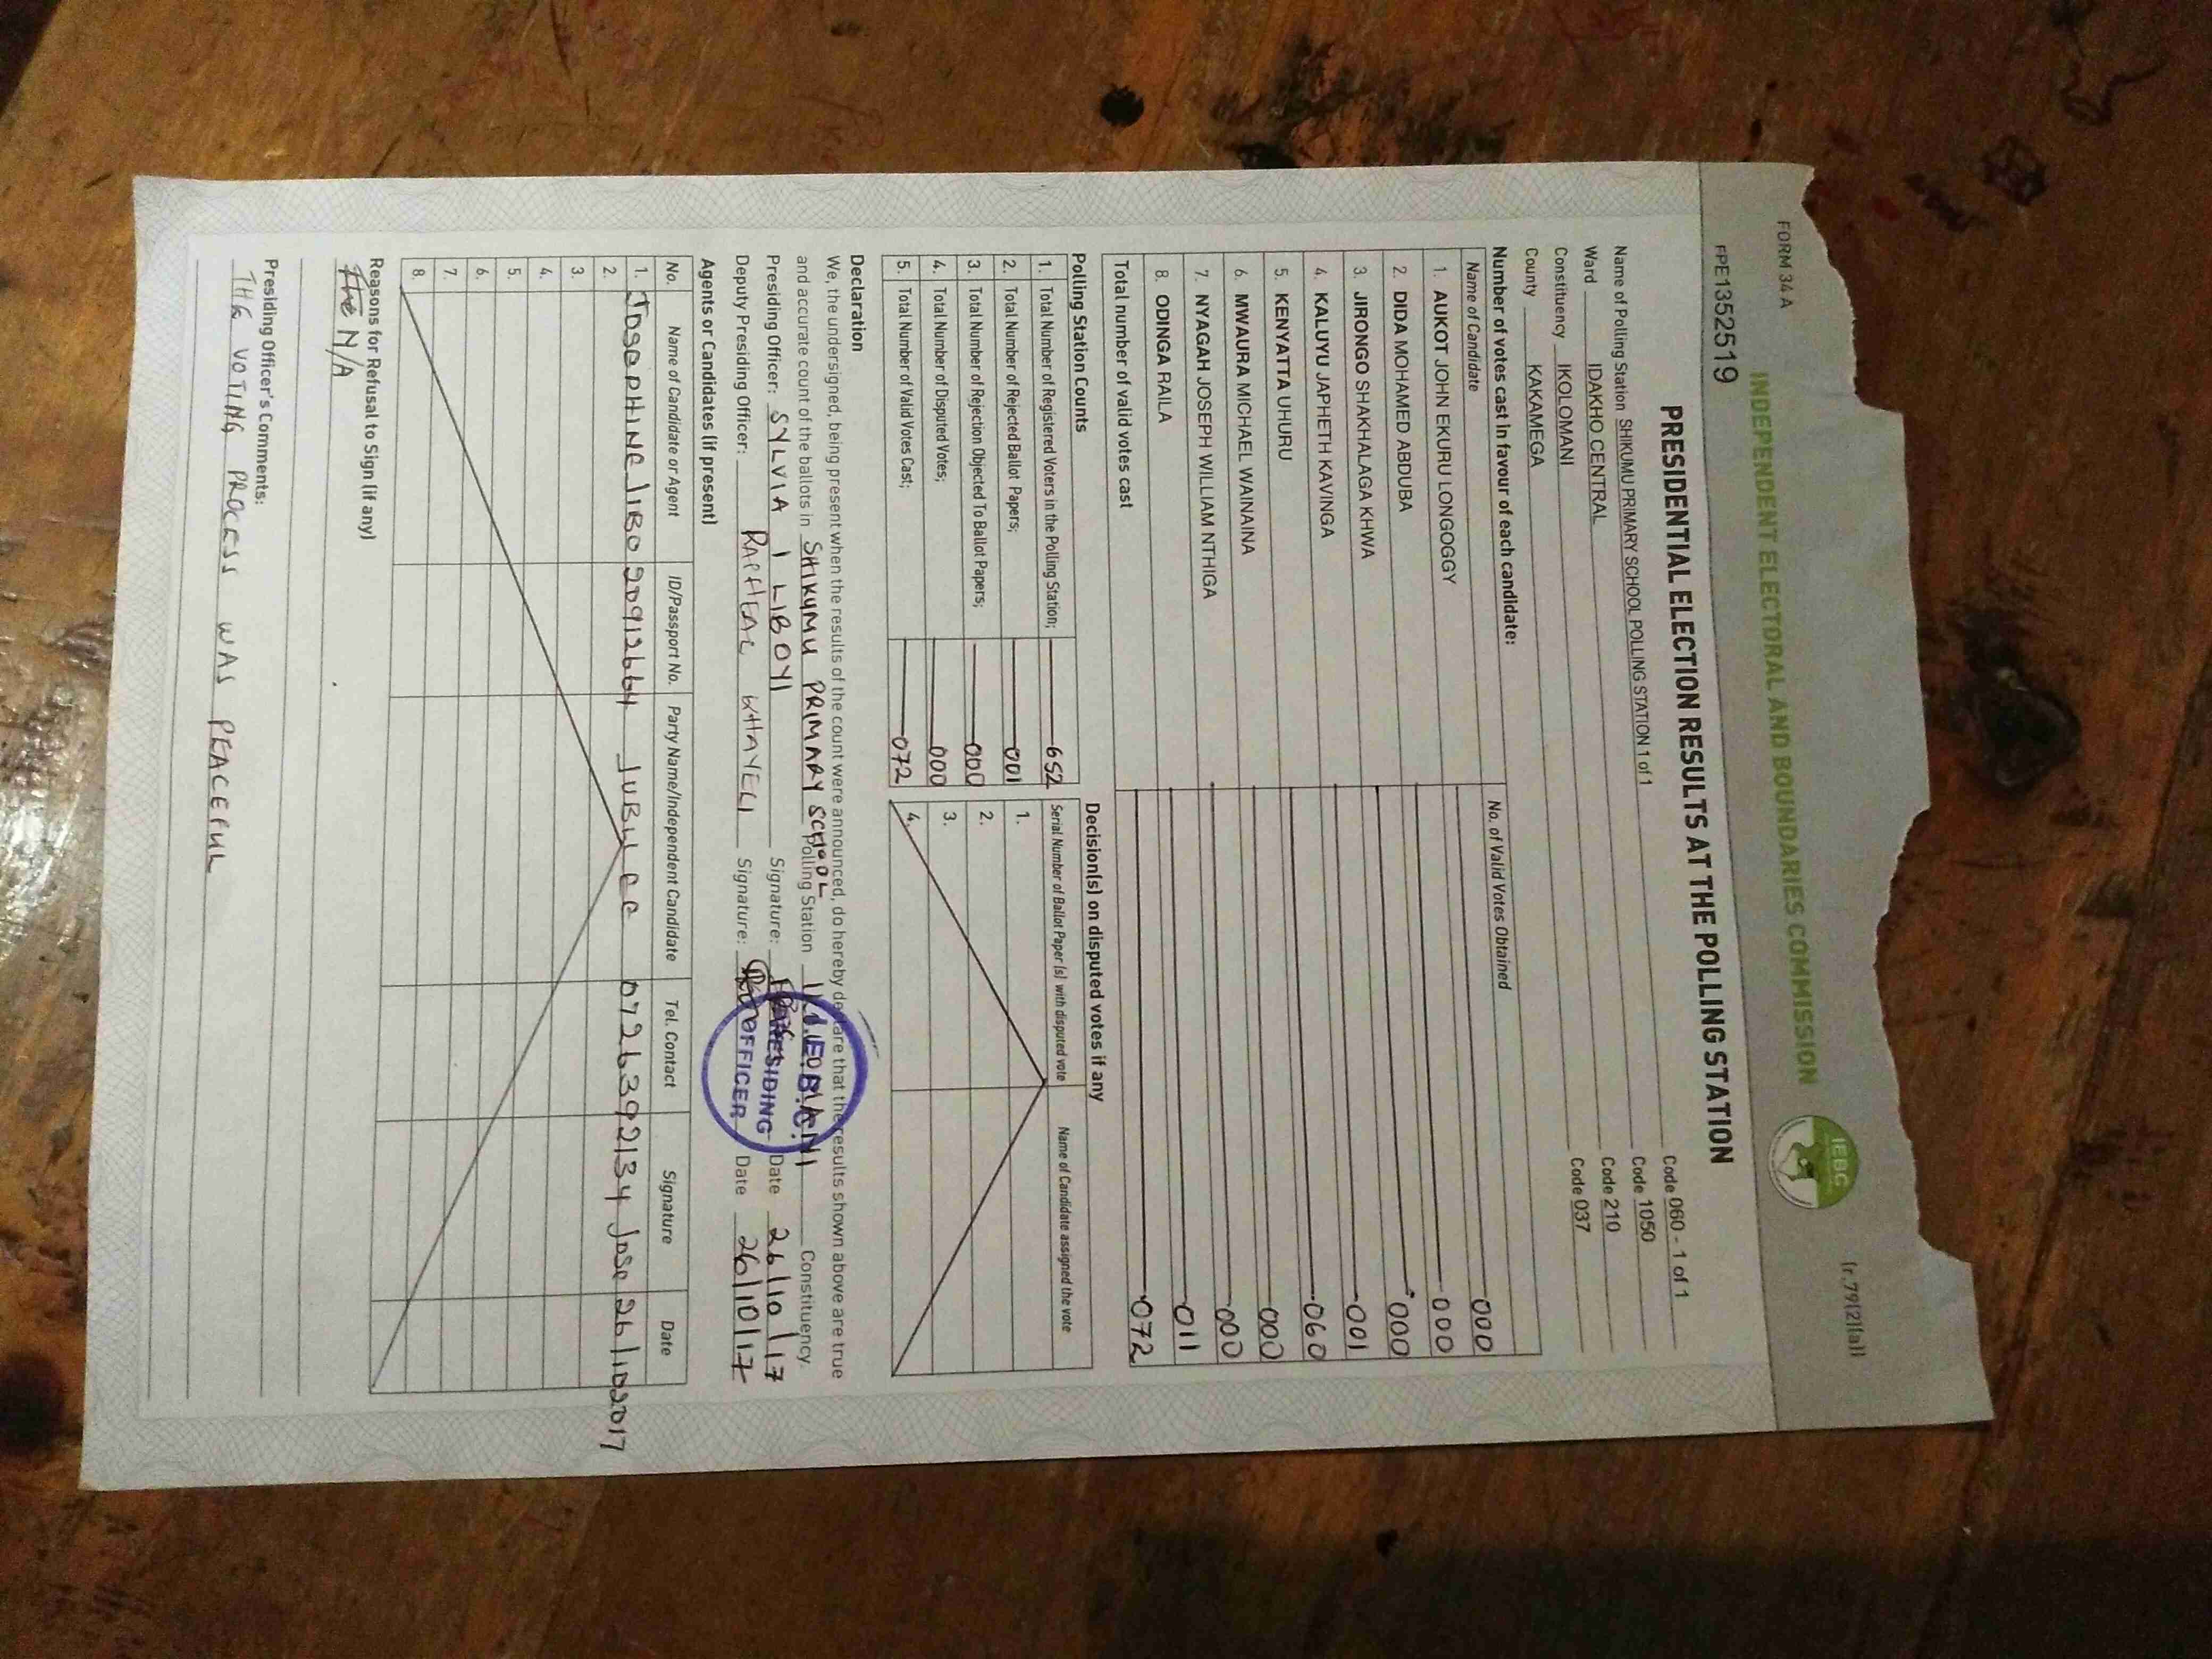 FORM 34 A (r.79(2)(a))
INDEPENDENT ELECTORAL AND BOUNDARIES COMMISSION
IEBC
PRE1352519
PRESIDENTIAL ELECTION RESULTS AT THE POLLING STATION
Name of Polling Station SHIKUMU PRIMARY SCHOOL POLLING STATION 1 of 1 Code 060 - 1 of 1
Ward IDAKHO CENTRAL Code 1050
Constituency IKOLOMANI Code 210
County KAKAMEGA Code 037
Number of votes cast in favour of each candidate:
Name of Candidate No. of Valid Votes Obtained
1. AUKOT JOHN EKURU LONGOGGY 000
2. DIDA MOHAMED ABDUBA 000
3. JIRONGO SHAKHALAGA KHWA 000
4. KALUYU JAPHETH KAVINGA 001
5. KENYATTA UHURU 060
6. MWAURA MICHAEL WAINAINA 000
7. NYAGAH JOSEPH WILLIAM NTHIGA 000
8. ODINGA RAILA 011
Total number of valid votes cast 072
Polling Station Counts Decision(s) on disputed votes if any
1. Total Number of Registered Voters in the Polling Station; 652 Serial Number of Ballot Paper (s) with disputed vote Name of Candidate assigned the vote
2. Total Number of Rejected Ballot Papers; 001 1.
3. Total Number of Rejection Objected To Ballot Papers; 000 2.
4. Total Number of Disputed Votes; 000 3.
5. Total Number of Valid Votes Cast; 072 4.
Declaration
We, the undersigned, being present when the results of the count were announced, do hereby declare that the results shown above are true
and accurate count of the ballots in SHIKUMU PRIMARY SCHOOL Polling Station IKOLOMANI Constituency.
Presiding Officer: SYLVIA I LIBOYI Signature: Date 26/10/17
Deputy Presiding Officer: RAPHEAL KHAYELI Signature: Date 26/10/17
I.E.B.C.
PRESIDING
OFFICER
Agents or Candidates (if present)
No. Name of Candidate or Agent ID/Passport No. Party Name/Independent Candidate Tel. Contact Signature Date
1. JOSEPHINE LIBO 20912664 JUBILEE 0726392134 Jose 26/102017
2.
3.
4.
5.
6.
7.
8.
Reasons for Refusal to Sign (if any)
The N/A
Presiding Officer's Comments:
THE VOTING PROCESS WAS PEACEFUL